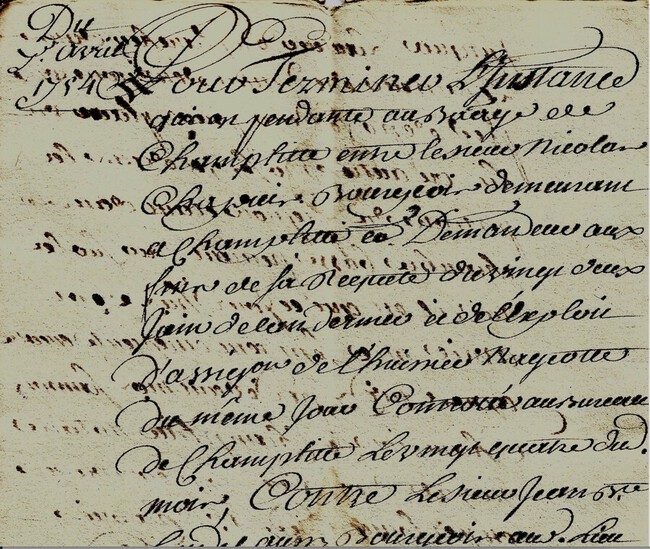 Du
7e avril
1754
Pour Terminer L'Instance
pendante au Bailliage de
Champlitte entre le sieur Nicolas
Bourgeois demeurant
a Champlitte et Demandeur aux
fins de sa Requete du vingt deux
Juin de l'an dernier et de l'Exploit
D'assignon de l'huissier Nageotte
du même Jour Controlé au Bureau
de Champlitte Le vingt quatre du.
mois, Contre Le sieur Jean Bte
aussy Bourgeois aud. Lieu